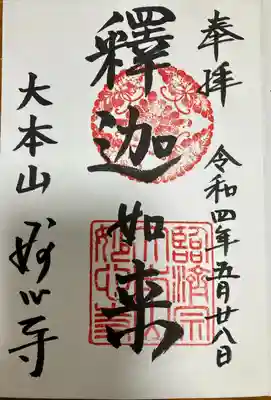 奉拝
令和四年五月廿八日
釋迦如来
大本山 妙心寺
臨済宗